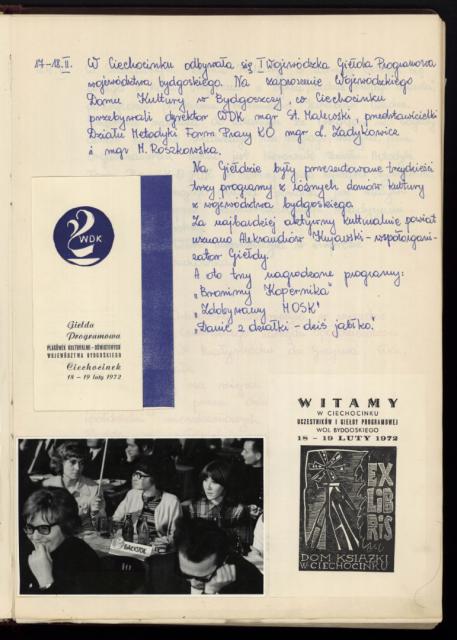 17-18.II. W Ciechocinku odbywała się I Wojewódzka Giełda Programowa
województwa bydgoskiego. Na zaproszenie Wojewódzkiego
Domu Kultury w Bydgoszczy, w Ciechocinku
przebywali dyrektor WDK mgr St. Malewski, przedstawicielki
Działu Metodyki Form Pracy KO mgr d. Zadykowicz
i mgr M. Roszkowska.
Na Giełdzie były prezentowane trzydzieści
trzy programy z różnych domów kultury
z województwa bydgoskiego.
Za najbardziej aktywny kulturalnie powiat
uznano Aleksandrów Kujawski - współorgani-
zator Giełdy.
A oto trzy nagrodzone programy:
"Bronimy Kopernika"
"Zdobywamy MOSK"
"Danie z działki - dziś jabłko."
WDK
Giełda
Programowa
PLACÓWEK KULTURALNO-OŚWIATOWYCH
WOJEWÓDZTWA BYDGOSKIEGO
Ciechocinek
18 - 19 luty 1972
WITAMY
W CIECHOCINKU
UCZESTNIKÓW I GIEŁDY PROGRAMOWEJ
WOJ. BYDGOSKIEGO
18 - 19 LUTY 1972
EX
LIB
RIS
DOM KSIĄŻKI
W CIECHOCINKU
BIAŁYSTOK